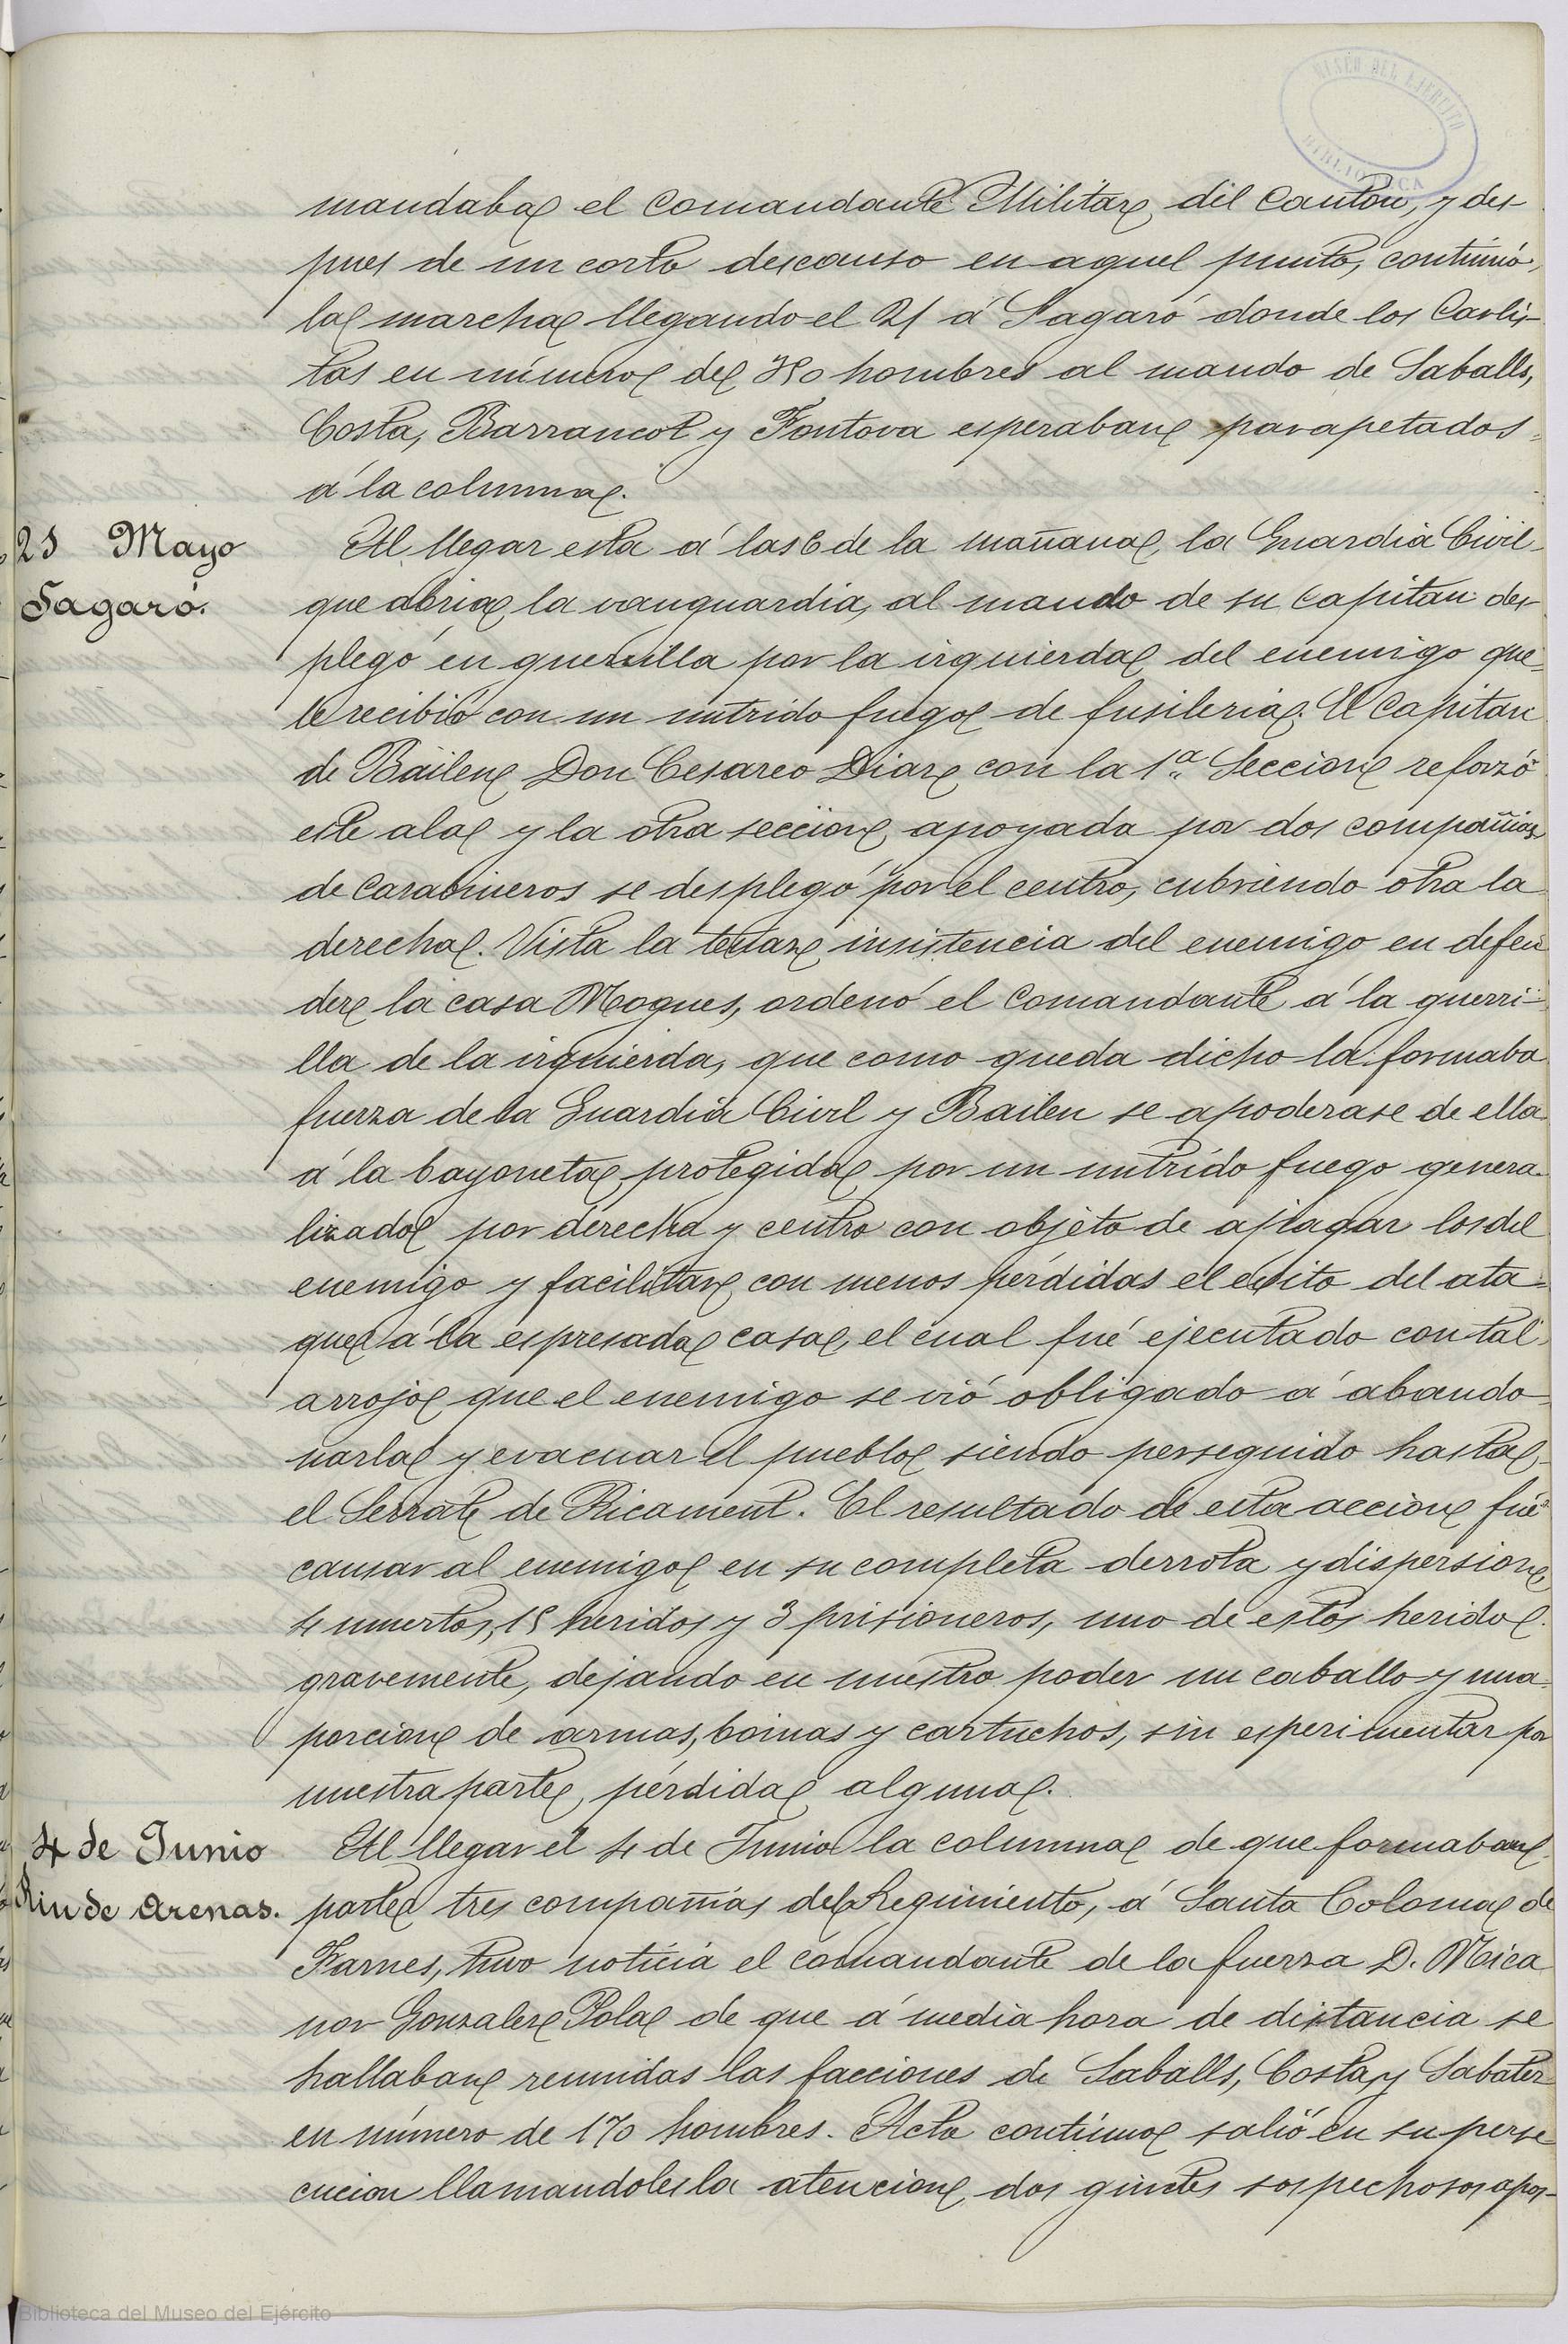 MUSEO DEL EJERCITO
BIBLIOTECA
mandaba el Comandante Militar del Canton, y des-
pues de un corto descanso en aquel punto, continuó
la marcha llegando el 21 á Sagaró donde los Carlis-
tas en número de hombres al mando de Saballs,
Costa, Barrancot y Fontova esperaban parapetados
á la columna.
21 Mayo
Sagaró.
Al llegar esta á las 6 de la mañana, la Guardia Civil
que abria la vanguardia, al mando de su capitan des-
plegó en guerrilla por la izquierda del enemigo que
le recibió con un nutrido fuego de fusileria. El Capitan
de Bailen Don Cesareo Diaz con la 1ª Seccion reforzó
este ala y la otra seccion apoyada por dos compañias
de Carabineros se desplegó por el centro, cubriendo otra la
derecha. Vista la tenaz insistencia del enemigo en defen
der la casa Moques, ordenó el Comandante á la guerri-
lla de la izquierda, que como queda dicho la formaba
fuerza de la Guardia Civil y Bailen se apoderase de ella
á la bayoneta protegida por un nutrido fuego genera-
lizado por derecha y centro con objeto de apagar los del
enemigo y facilitar con menos pérdidas el éxito del ata-
que á la espresada casa, el cual fué ejecutado con tal
arrojo que el enemigo se vió obligado á abando-
narla y evacuar el pueblo siendo perseguido hasta
el Serrate de Ricament. El resultado de esta accion fué
causar al enemigo en su completa derrota y dispersion
4 muertos, 15 heridos y 3 prisioneros, uno de estos herido
gravemente, dejando en nuestro poder un caballo y una
porcion de armas, boinas y cartuchos, sin esperimentar por
nuestra parte, pérdida alguna.
4 de Junio
Riu de Arenas.
Al llegar el 4 de Junio la columna de que formaban
parte tres compañias del Regimiento, á Santa Coloma de
Farnes, tuvo noticia el comandante de la fuerza D. Nica
nor Gonzalez Pola de que á media hora de distancia se
hallaban reunidas las facciones de Saballs, Costa, y Sabater
en número de 170 hombres. Acto contínuo salió en su perse
cucion llamandoles la atencion dos ginetes sospechosos apos-
Biblioteca del Museo del Ejército